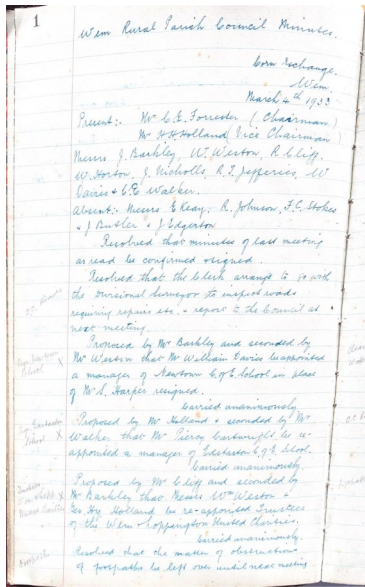 1
Wem Rural Parish Council Minutes.
Corn Exchange,
Wem.
March 4th 1933
Present:- Mr C.E. Forrester (Chairman)
Mr H H Holland (Vice Chairman)
Messrs J. Barkley, W. Weston, R Cliff,
W. Horton, J. Nicholls, R. T. Jefferies, W
Davies & C.E. Walker.
Absent:- Messrs E Keay, R. Johnson, F.C. Stokes
& J Butler & J Edgerton
Resolved that minutes of last meeting
as read be confirmed & signed.
Resolved that the Clerk arrange to go with
the Divisional Surveyor to inspect roads
requiring repairs etc. & report to the Council at
next meeting.
Proposed by Mr Barkley and seconded by
Mr Weston that Mr William Davies be appointed
a manager of Newtown C of E. School in place
of Mr S. Harper resigned.
Carried unanimously.
School X
Proposed by Mr Holland & seconded by Mr
Walker that Mr Piercy Cartwright be re-
appointed a manager of Edstaston C of E. School.
Carried unanimously.
School X
Proposed by Mr Cliff and seconded by
Mr Barkley that Messrs Wm Weston &
Geo. Hy Holland be re-appointed Trustees
of the Wem & Loppington United Charities.
Carried unanimously.
X
Resolved that the matter of observation
of footpaths be left over until next meeting
Footpaths